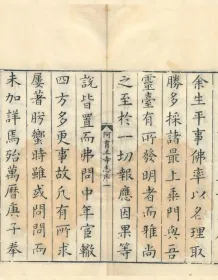 余生平事佛率以名理取
勝多採諸最上乘門與吾
靈臺有所發明者而雅尚
之至於一切報應因果等
說皆置而弗問中年官轍
四方多更事故凡有所求
屢著肹蠁時雖或問問而
未加詳焉殆萬曆庚子奉